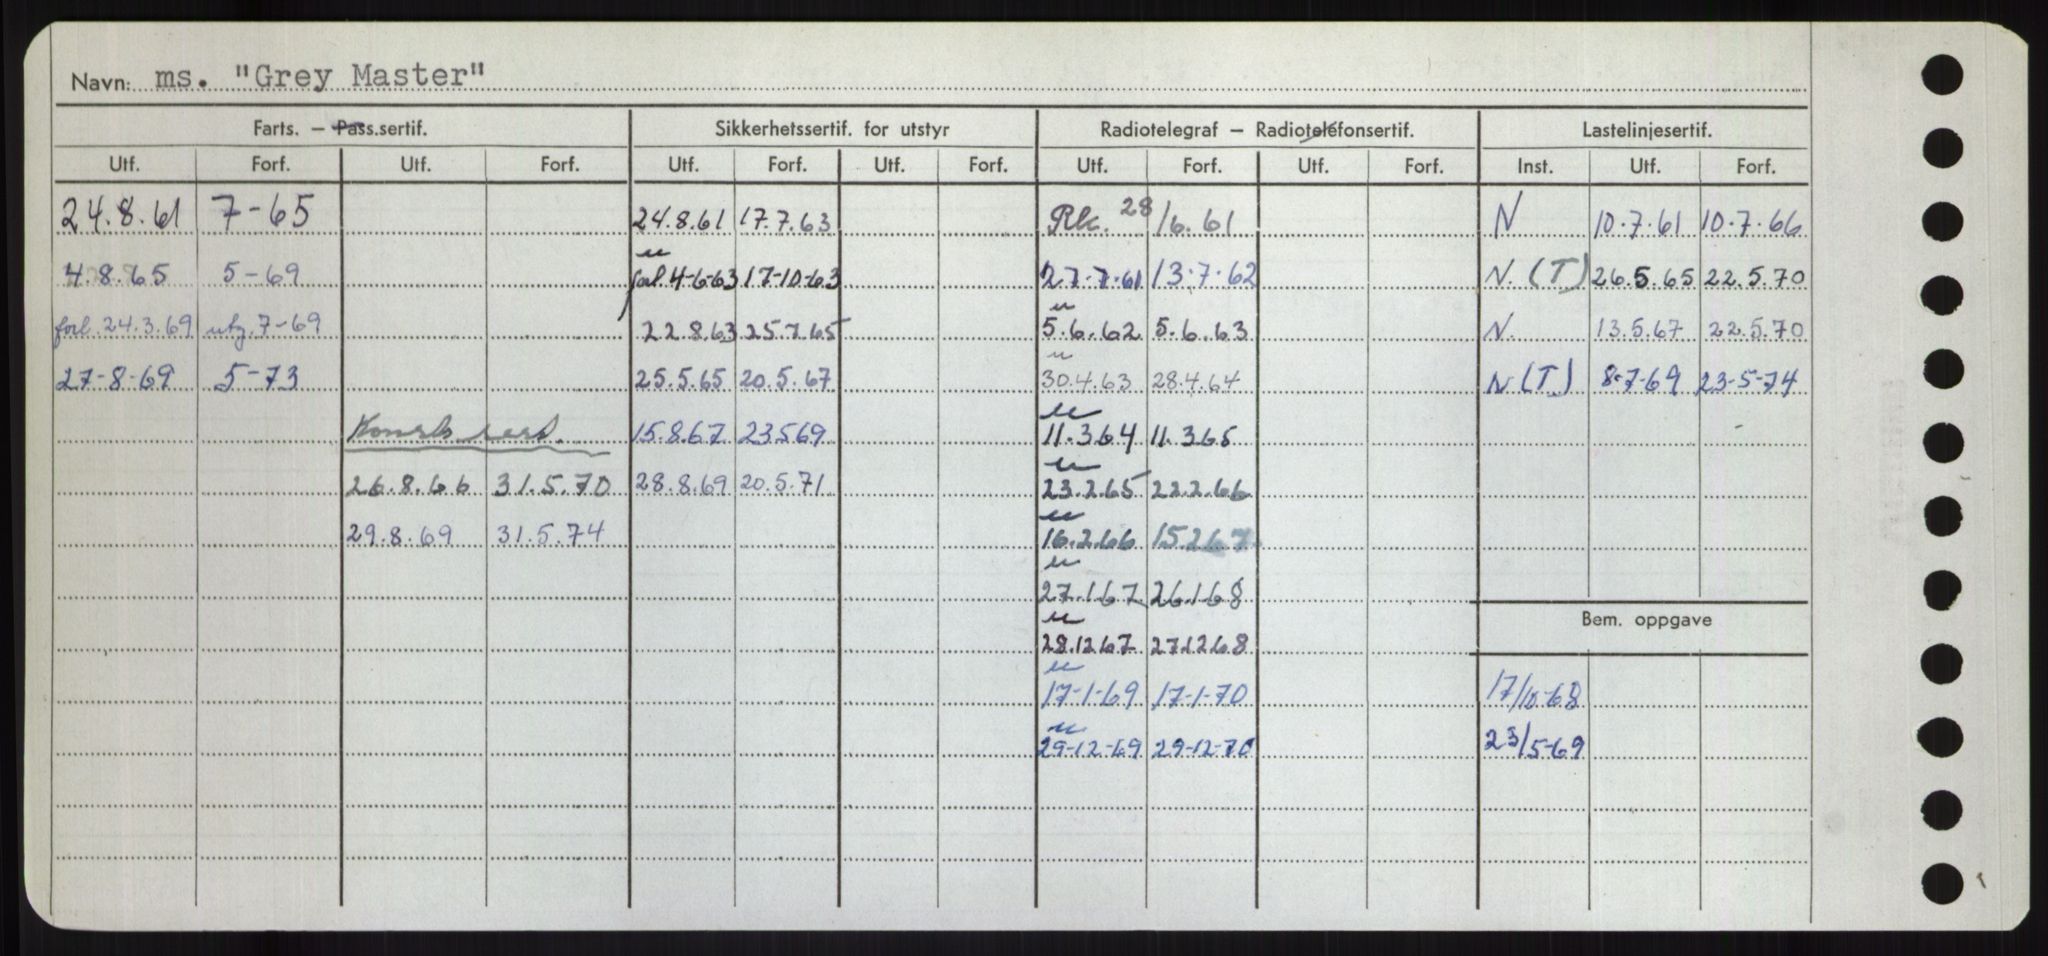 Navn: ms. "Grey Master"
Farts. – Pass.sertif. Sikkerhetssertif. for utstyr Radiotelegraf – Radiotelefonsertif. Lastelinjesertif.
Utf. Forf. Utf. Forf. Utf. Forf. Utf. Forf. Utf. Forf. Utf. Forf. Inst. Utf. Forf.
24.8.61 7-65 24.8.61 17.7.63 Rk. 28/6.61 N 10.7.61 10.7.66
4.8.65 5-69 forl. 4-6-63 17-10-63 27.7.61 13.7.62 N. (T) 26.5.65 22.5.70
forl. 24.3.69 utg. 7-69 22.8.63 25.7.65 5.6.62 5.6.63 N. 13.5.67 22.5.70
27-8-69 5-73 25.5.65 20.5.67 30.4.63 28.4.64 N (T) 8-7-69 23-5-74
15.8.67 23.5.69 11.3.64 11.3.65
26.8.66 31.5.70 28.8.69 20.5.71 23.2.65 22.2.66
29.8.69 31.5.74 16.2.66 15.2.67
27.1.67 26.1.68
Bem. oppgave
28.12.67 27.12.68
17-1-69 17-1-70 17/10-68
29-12-69 29-12-70 23/5-69